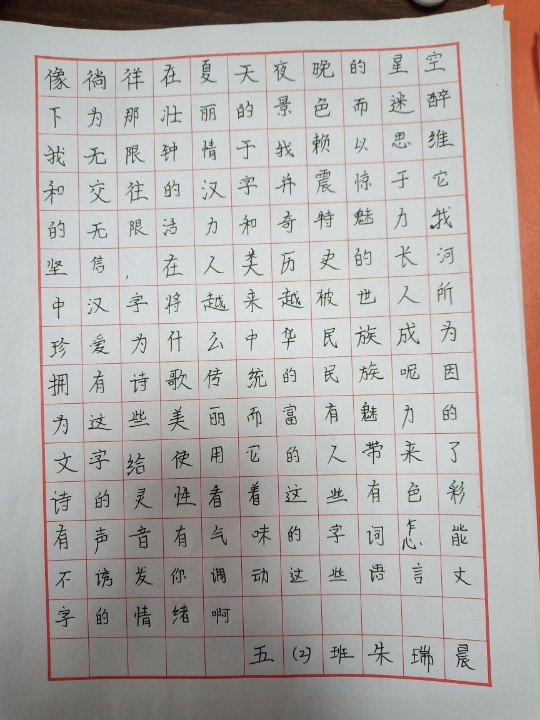 像徜徉在夏天夜晚的星空
下为那壮丽的景色而迷醉
我无限钟情于我赖以思维
和交往的汉字并震惊于它
的无限活力和奇特魅力我
坚信，在人类历史的长河
中汉字将越来越被世人所
珍爱为什么中华民族成为
拥有诗歌传统的民族呢因
为这些美丽而富有魅力的
文字给使用它的人带来了
诗的灵性看着这些有色彩
有声音有气味的字词怎能
不诱发你调动这些语言文
字的情绪啊
五(2)班朱瑞晨